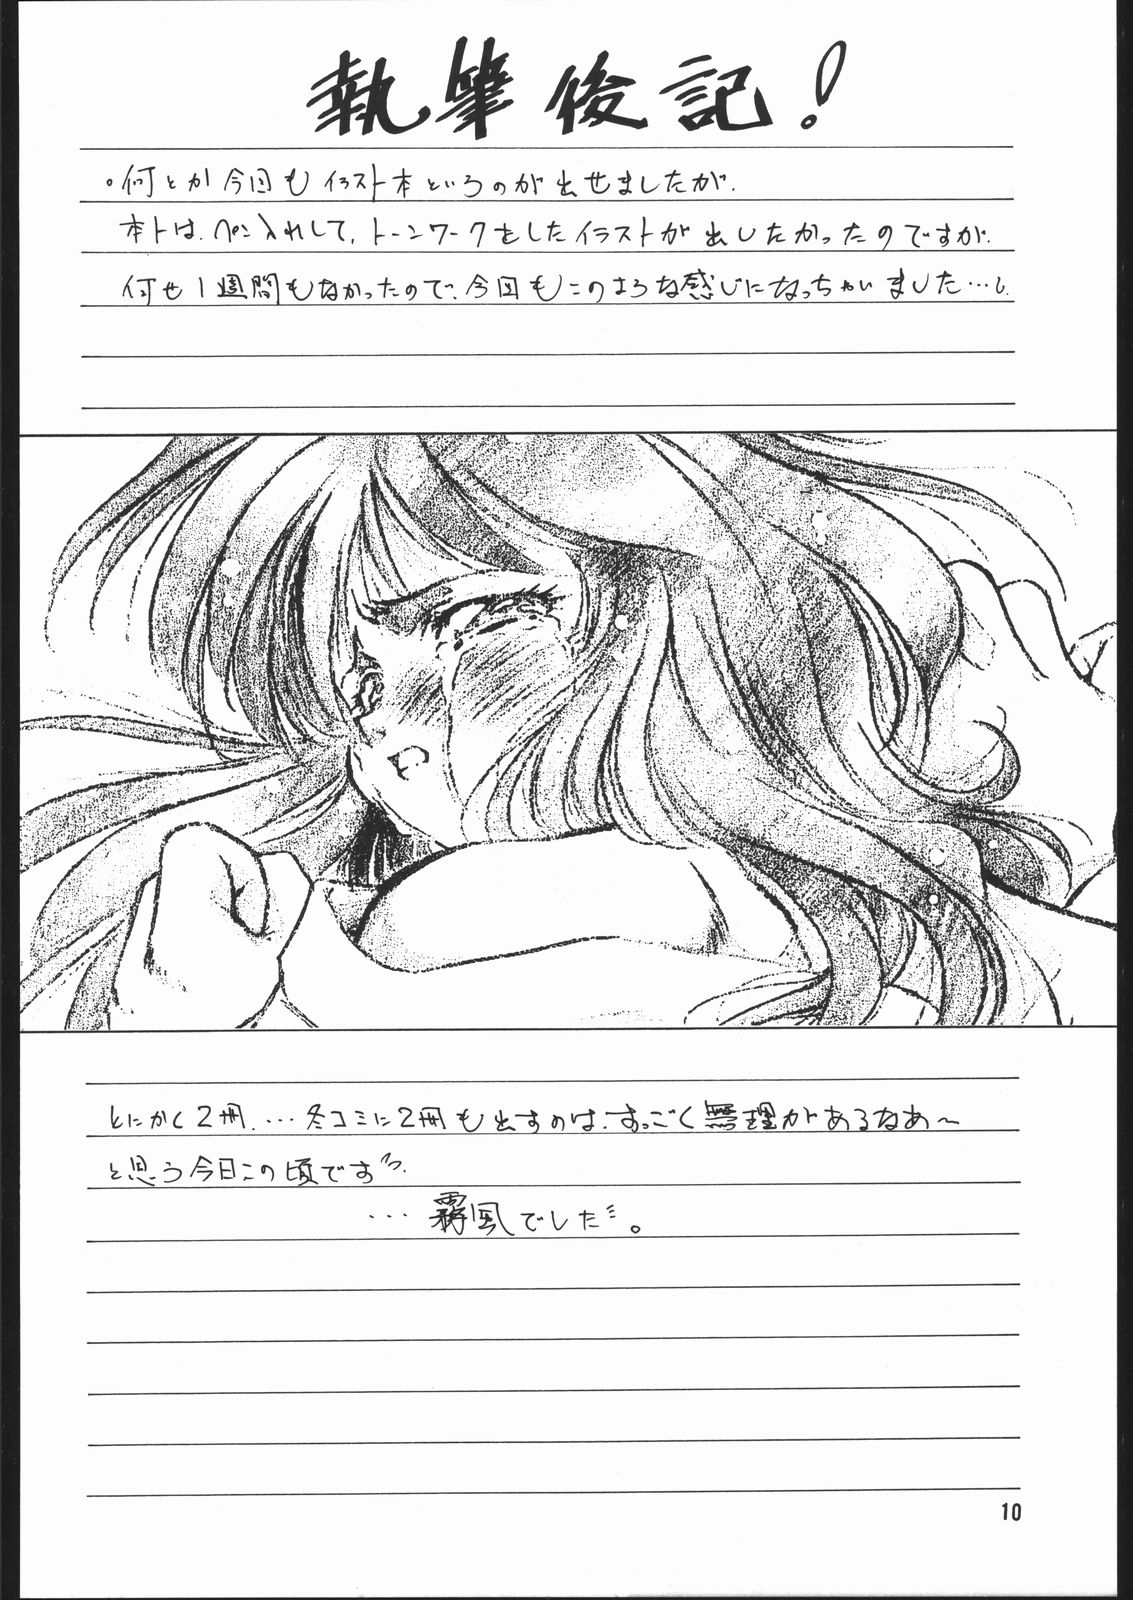 執筆後記!
・何とか今回もイラスト本というのが出せましたが、
本トは、ペン入れして、トーンワークをしたイラストが出したかったのですが、
何せ1週間もなかったので、今回もこのような感じになっちゃいました…
とにかく2冊、…冬コミに2冊も出すのは、すっごく無理があるなあ〜
と思う今日この頃です
…霧風でした。
10